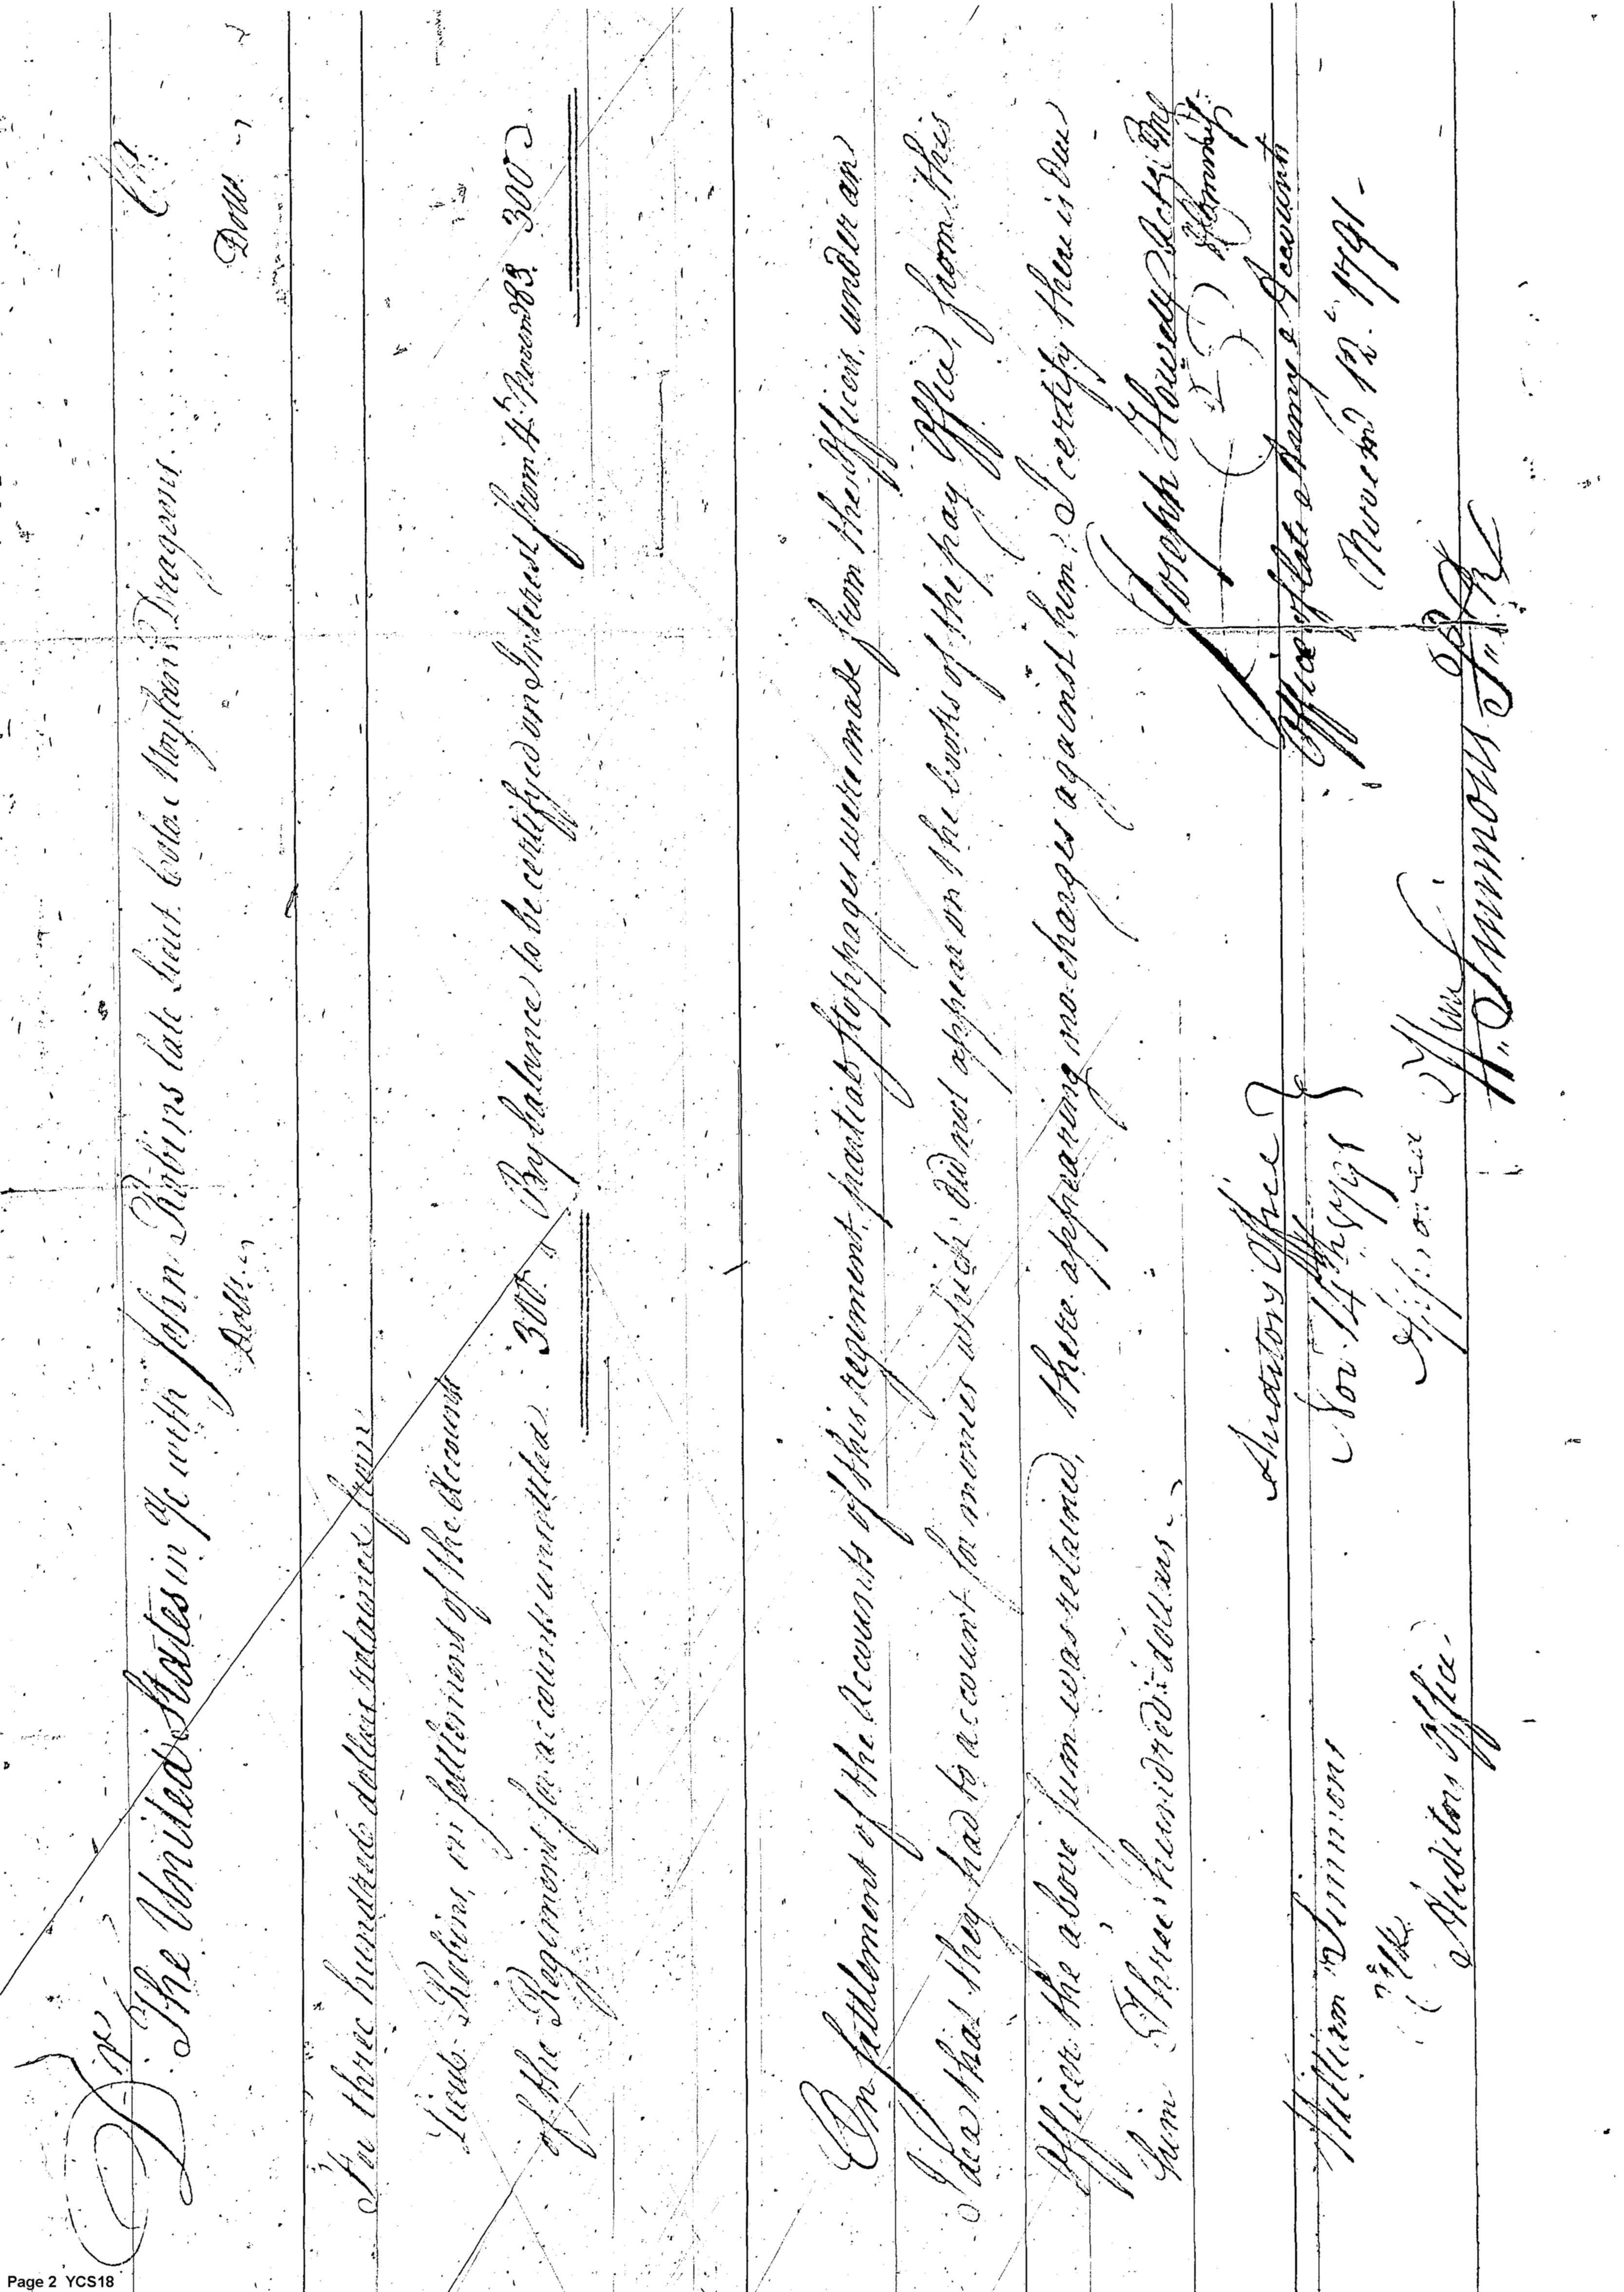 Dr. Cr.
The United States in a/c with John Robins late Lieut. Colo. Moylans Dragoons
Dolls. Dolls.
For three hundred dollars retained from
Lieut. Robins, on settlement of the Accounts
of the Regiment for accounts unsettled. 300. By balance to be certifyed on Interest from 4th. Novem. 83. 300
On settlement of the Accounts of this regiment, partial stoppages were made from the officers, under an
Idea that they had to account for monies which did not appear on the books of the pay Office, from this
Officer the above sum was retained, there appearing no charges against him. I certify there is due
him Three hundred dollars.
Joseph Howell Actg. PM
& Commr.
Office of late Army Accounts
Novem 12. 1791.
Auditors Office }
Nov. 14th 1791 }
William Simmons
Clk.
Auditors Office
W. Simmons
Page 2 YCS18